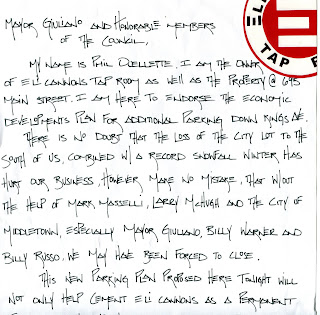 MAYOR GIULIANO AND HONORABLE MEMBERS
OF THE COUNCIL,
MY NAME IS PHIL OUELLETTE. I AM THE OWNER
OF ELI CANNONS TAP ROOM AS WELL AS THE PROPERTY @ 695
MAIN STREET. I AM HERE TO ENDORSE THE ECONOMIC
DEVELOPMENTS PLAN FOR ADDITIONAL PARKING DOWN KINGS AVE.
THERE IS NO DOUBT THAT THE LOSS OF THE CITY LOT TO THE
SOUTH OF US, COMBINED W/ A RECORD SNOWFALL WINTER HAS
HURT OUR BUSINESS, HOWEVER MAKE NO MISTAKE, THAT W/OUT
THE HELP OF MARK MASSELLI, LARRY MCHUGH AND THE CITY OF
MIDDLETOWN, ESPECIALLY MAYOR GIULIANO, BILLY WARNER AND
BILLY RUSSO, WE MAY HAVE BEEN FORCED TO CLOSE.
THIS NEW PARKING PLAN PROPOSED HERE TONIGHT WILL
NOT ONLY HELP CEMENT ELI CANNONS AS A PERMANENT
EL
TAP